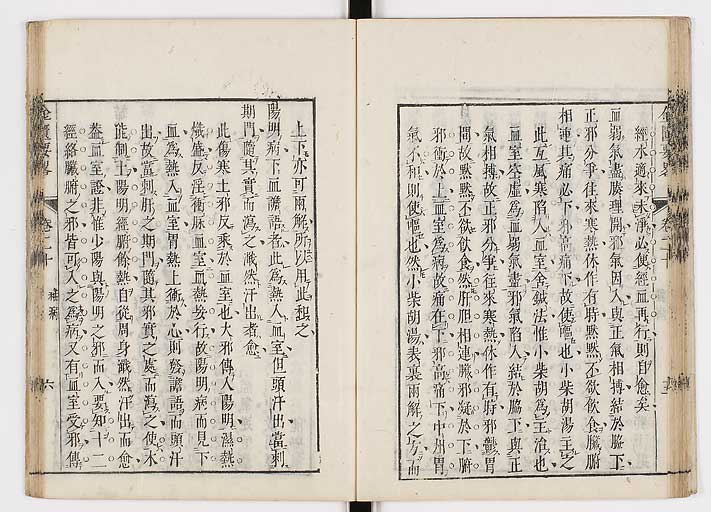 經水適來未淨必使經血再行則自愈矣
血弱氣盡腠理開邪氣因入與正氣相搏結於脇下
正邪分爭往來寒熱休作有時默默不欲飲食臟腑
相連其痛必下邪高痛下故使嘔也小柴胡湯主之
此互風寒陷入血室舍鍼法惟小柴胡為主治也
血室空虛為血弱氣盡邪氣陷入結於脇下與正
氣相搏故正邪分爭往來寒熱休作有時邪鬱胃
間故默默不欲飲食然肝胆相連臟邪凝於下腑
邪衝於上血室為病故痛在下邪高痛下中州胃
氣不和則使嘔也然小柴胡湯表裏兩解之方而
上下亦可兩解所以用此和之
陽明病下血譫語者此為熱入血室但頭汗出當刺
期門隨其實而瀉之濈然汗出者愈
此傷寒土邪反乘於血室也大邪傳入陽明濕熱
熾盛反淫衝脈血室血熱妄行故陽明病而見下
血為熱入血室胃熱上衝於心則發譫語而頭汗
出故當刺肝之期門隨其邪實之處而瀉之使木
能制土陽明經腑餘熱自從周身濈然汗出而愈
葢血室證非惟少陽與陽明之邪而入要知十二
經絡臟腑之邪皆可入之為病又有血室受邪傳
金匱要畧
卷二十
六